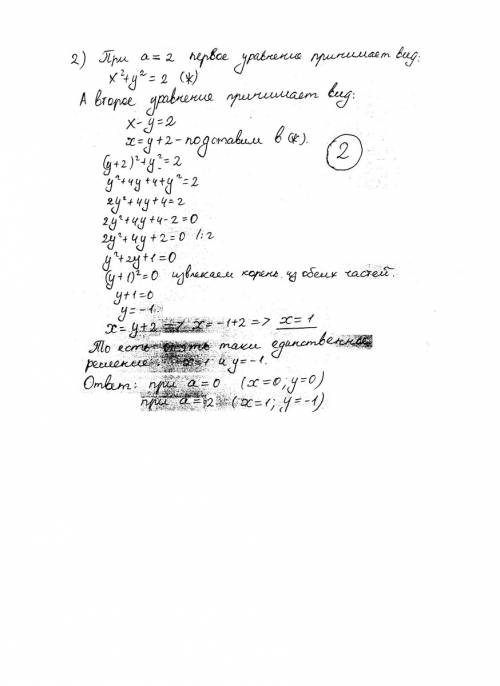 2) При a=2 первое уравнение принимает вид:
x²+y²=2 (*)
А второе уравнение принимает вид:
x-y=2
x=y+2 - подставим в (*).
2
(y+2)²+y²=2
y²+4y+4+y²=2
2y²+4y+4=2
2y²+4y+4-2=0
2y²+4y+2=0 |:2
y²+2y+1=0
(y+1)²=0 извлекаем корень из обеих частей.
y+1=0
y=-1.
x=y+2 => x=-1+2 => x=1
То есть опять таки единственное
решение x=1 и y=-1.
Ответ: при a=0 (x=0, y=0)
при a=2 (x=1; y=-1)